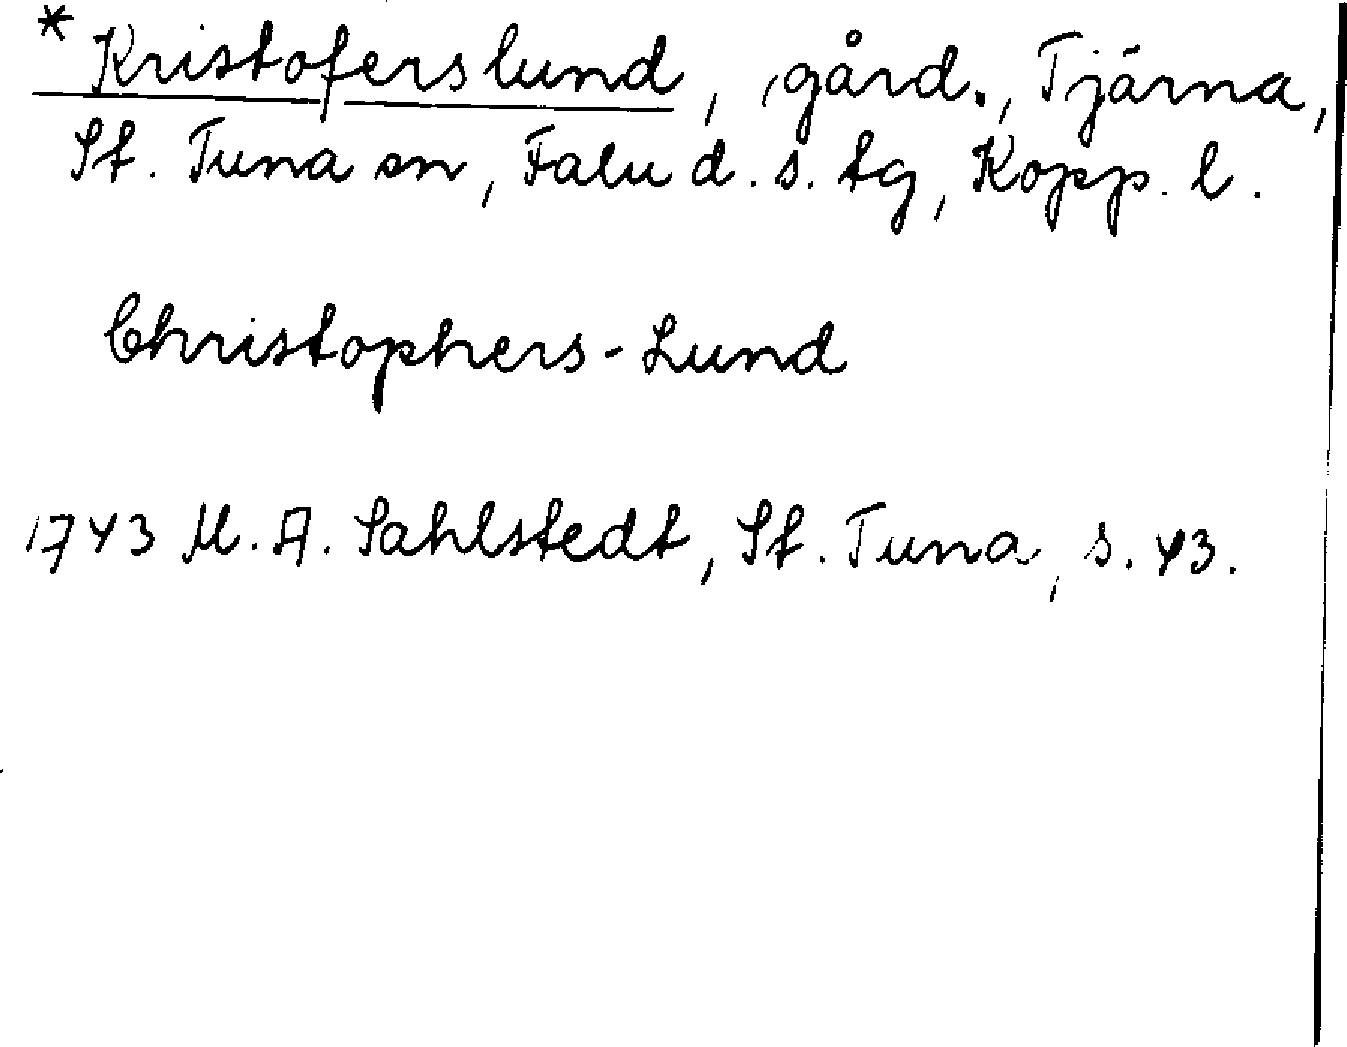 * Kristoferslund, gård., Tjärna,
St. Tuna sn, Falu d. s. tg, Kopp. l.
Christophers-Lund
1743 M. A. Sahlstedt, St. Tuna, s. 43.